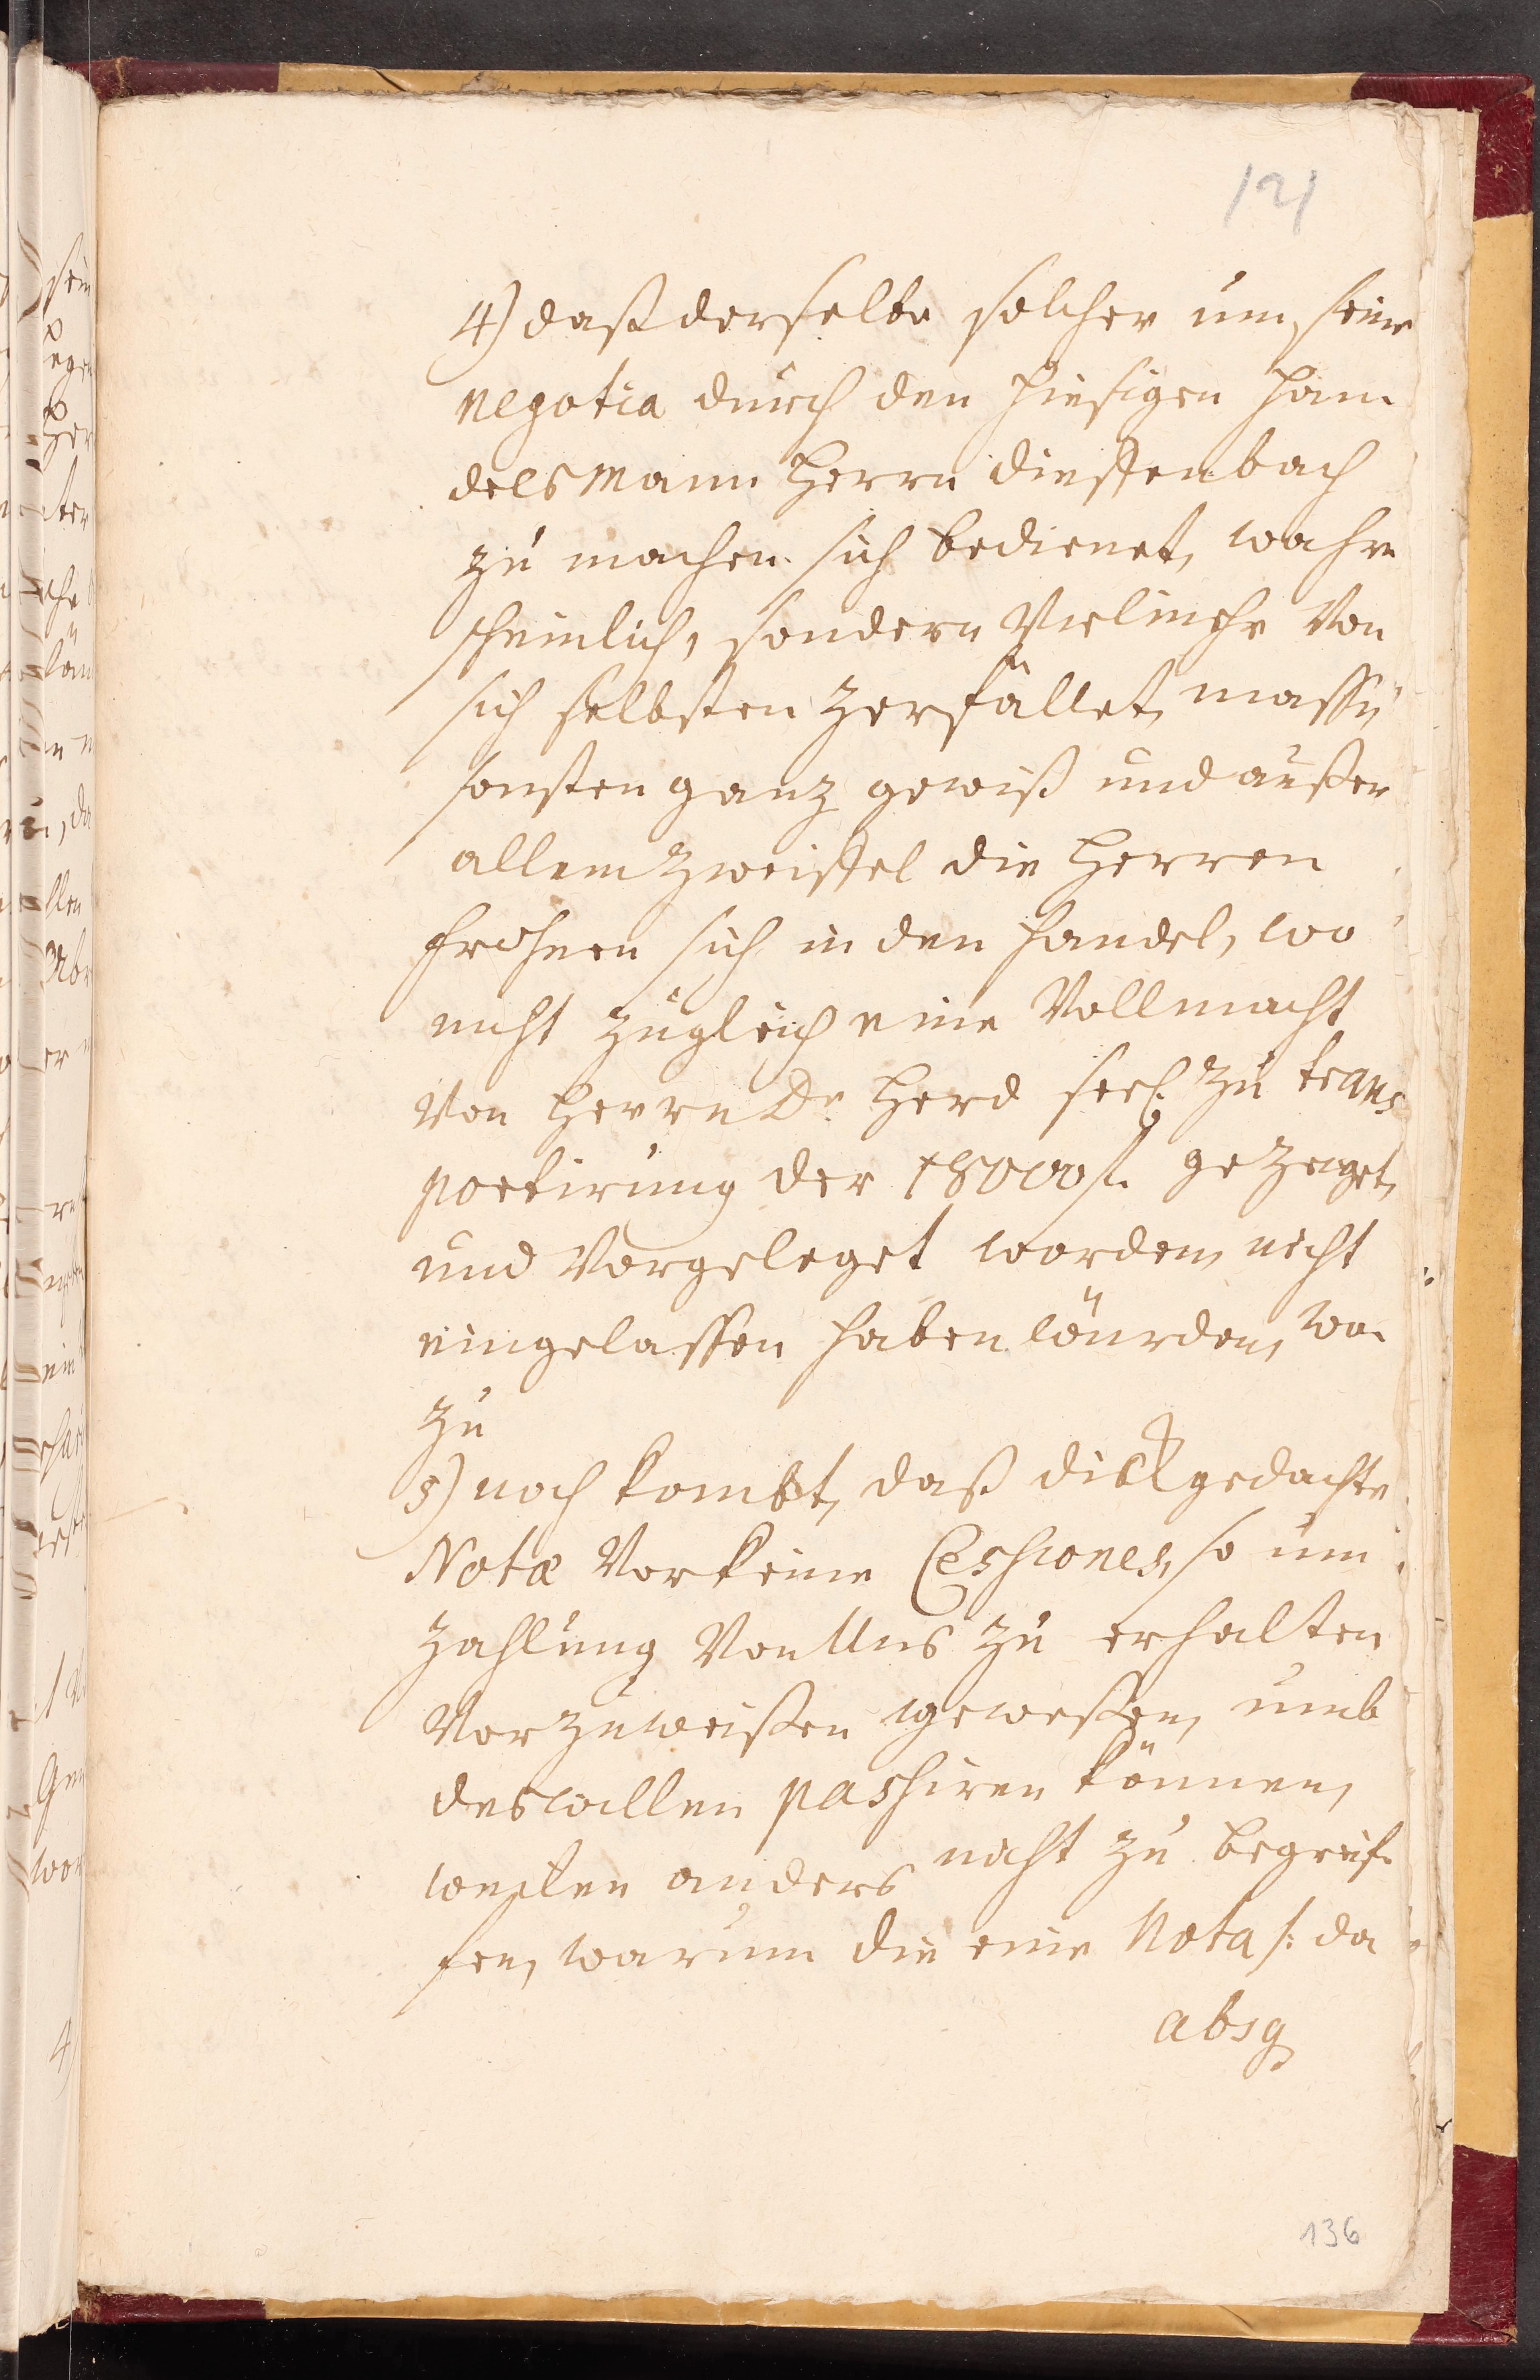 121
4) daß derselbe solcher um seine
negotia durch den hiesigen Han-
dels Mann Herrn Dieffenbach
zu machen sich bedienet, wahr-
scheinlich, sondern Vielmehr Von
sich selbsten zerfället, massen
sonsten ganz gewiß und außer
allem Zweiffel die Herren
Frohnen sich in den Handel, wo
nicht zugleich eine Vollmacht
Von Herrn Dr. Herd seel. zu trans
portirung der 18000 f. gezeiget,
und Vorgeleget worden, nicht
eingelassen haben würden, wo-
zu
5) noch kombt, daß dickgedachte
Notæ Vor keine Cessiones, so um
Zahlung Von Uns zu erhalten
Vorzuweißen geweßen, umb
deswillen passiren können,
weilen anders nicht zu begreif-
fen, warum die eine Nota /: da
absq
136